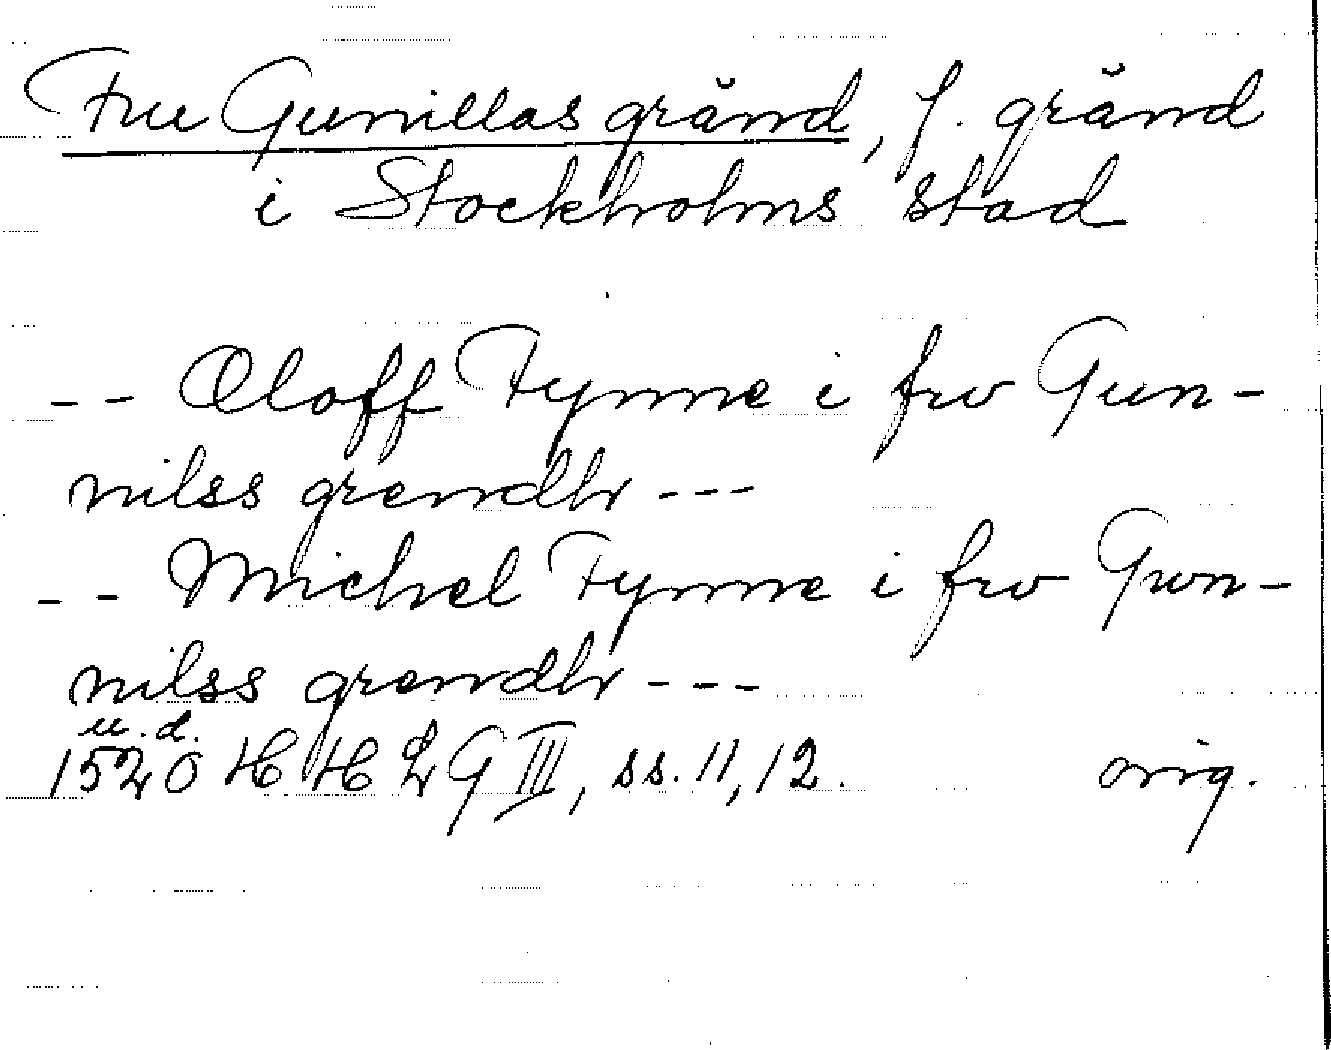 Fru Gunillas gränd, f. gränd
i Stockholms stad
-- Oloff Fynne i frv Gun-
nilss grendh ---
-- Michel Fynne i frv Gwn-
nilss grendh ---
u.d.
1520 HH G III, ss. 11, 12. orig.